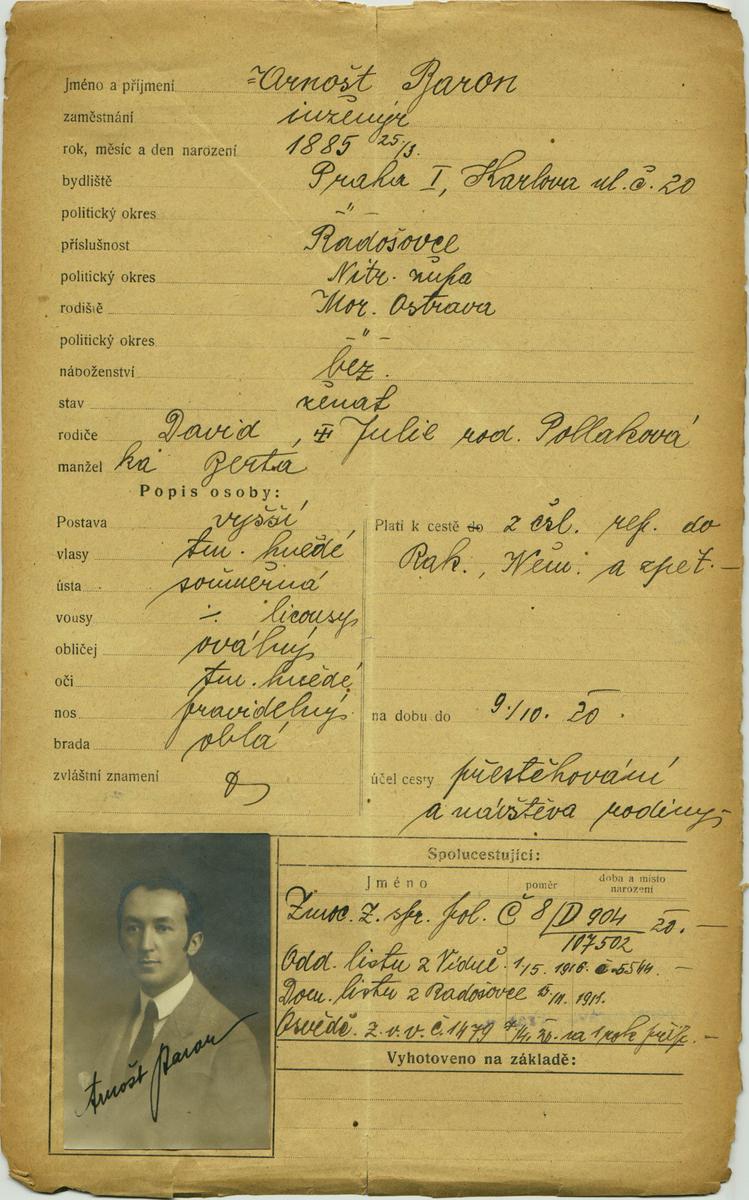 Jméno a příjmení Arnošt Baron
zaměstnání inženýr
rok, měsíc a den narození 1885 25/3.
bydliště Praha I, Karlova ul. č. 20
politický okres -"-
příslušnost Radošovce
politický okres Nitr. župa
rodiště Mor. Ostrava
politický okres -"-
náboženství bez.
stav ženat
rodiče David, Julie rod. Pollaková
manžel ka Berta
Popis osoby:
Postava vyšší
vlasy tm. hnědé
ústa souměrná
vousy ./. licousy
obličej oválný
oči tm. hnědé
nos pravidelný
brada oblá
zvláštní znamení
Platí k cestě do z čsl. rep. do
Rak., Něm. a zpět. —
na dobu do 9./10. 20.
účel cesty přestěhování
a návštěva rodiny
Spolucestující:
Jméno poměr doba a místo narození
Zmoc. z. spr. pol. Č 8/D 904 20. —
107502
Odd. listu z Vídně 1/5. 1916 č. 5544. —
Dom. listu z Radošovce 1911.
Osvědč. z. v. v. č. 1479 na 1 rok —
Vyhotoveno na základě:
Arnošt Baron